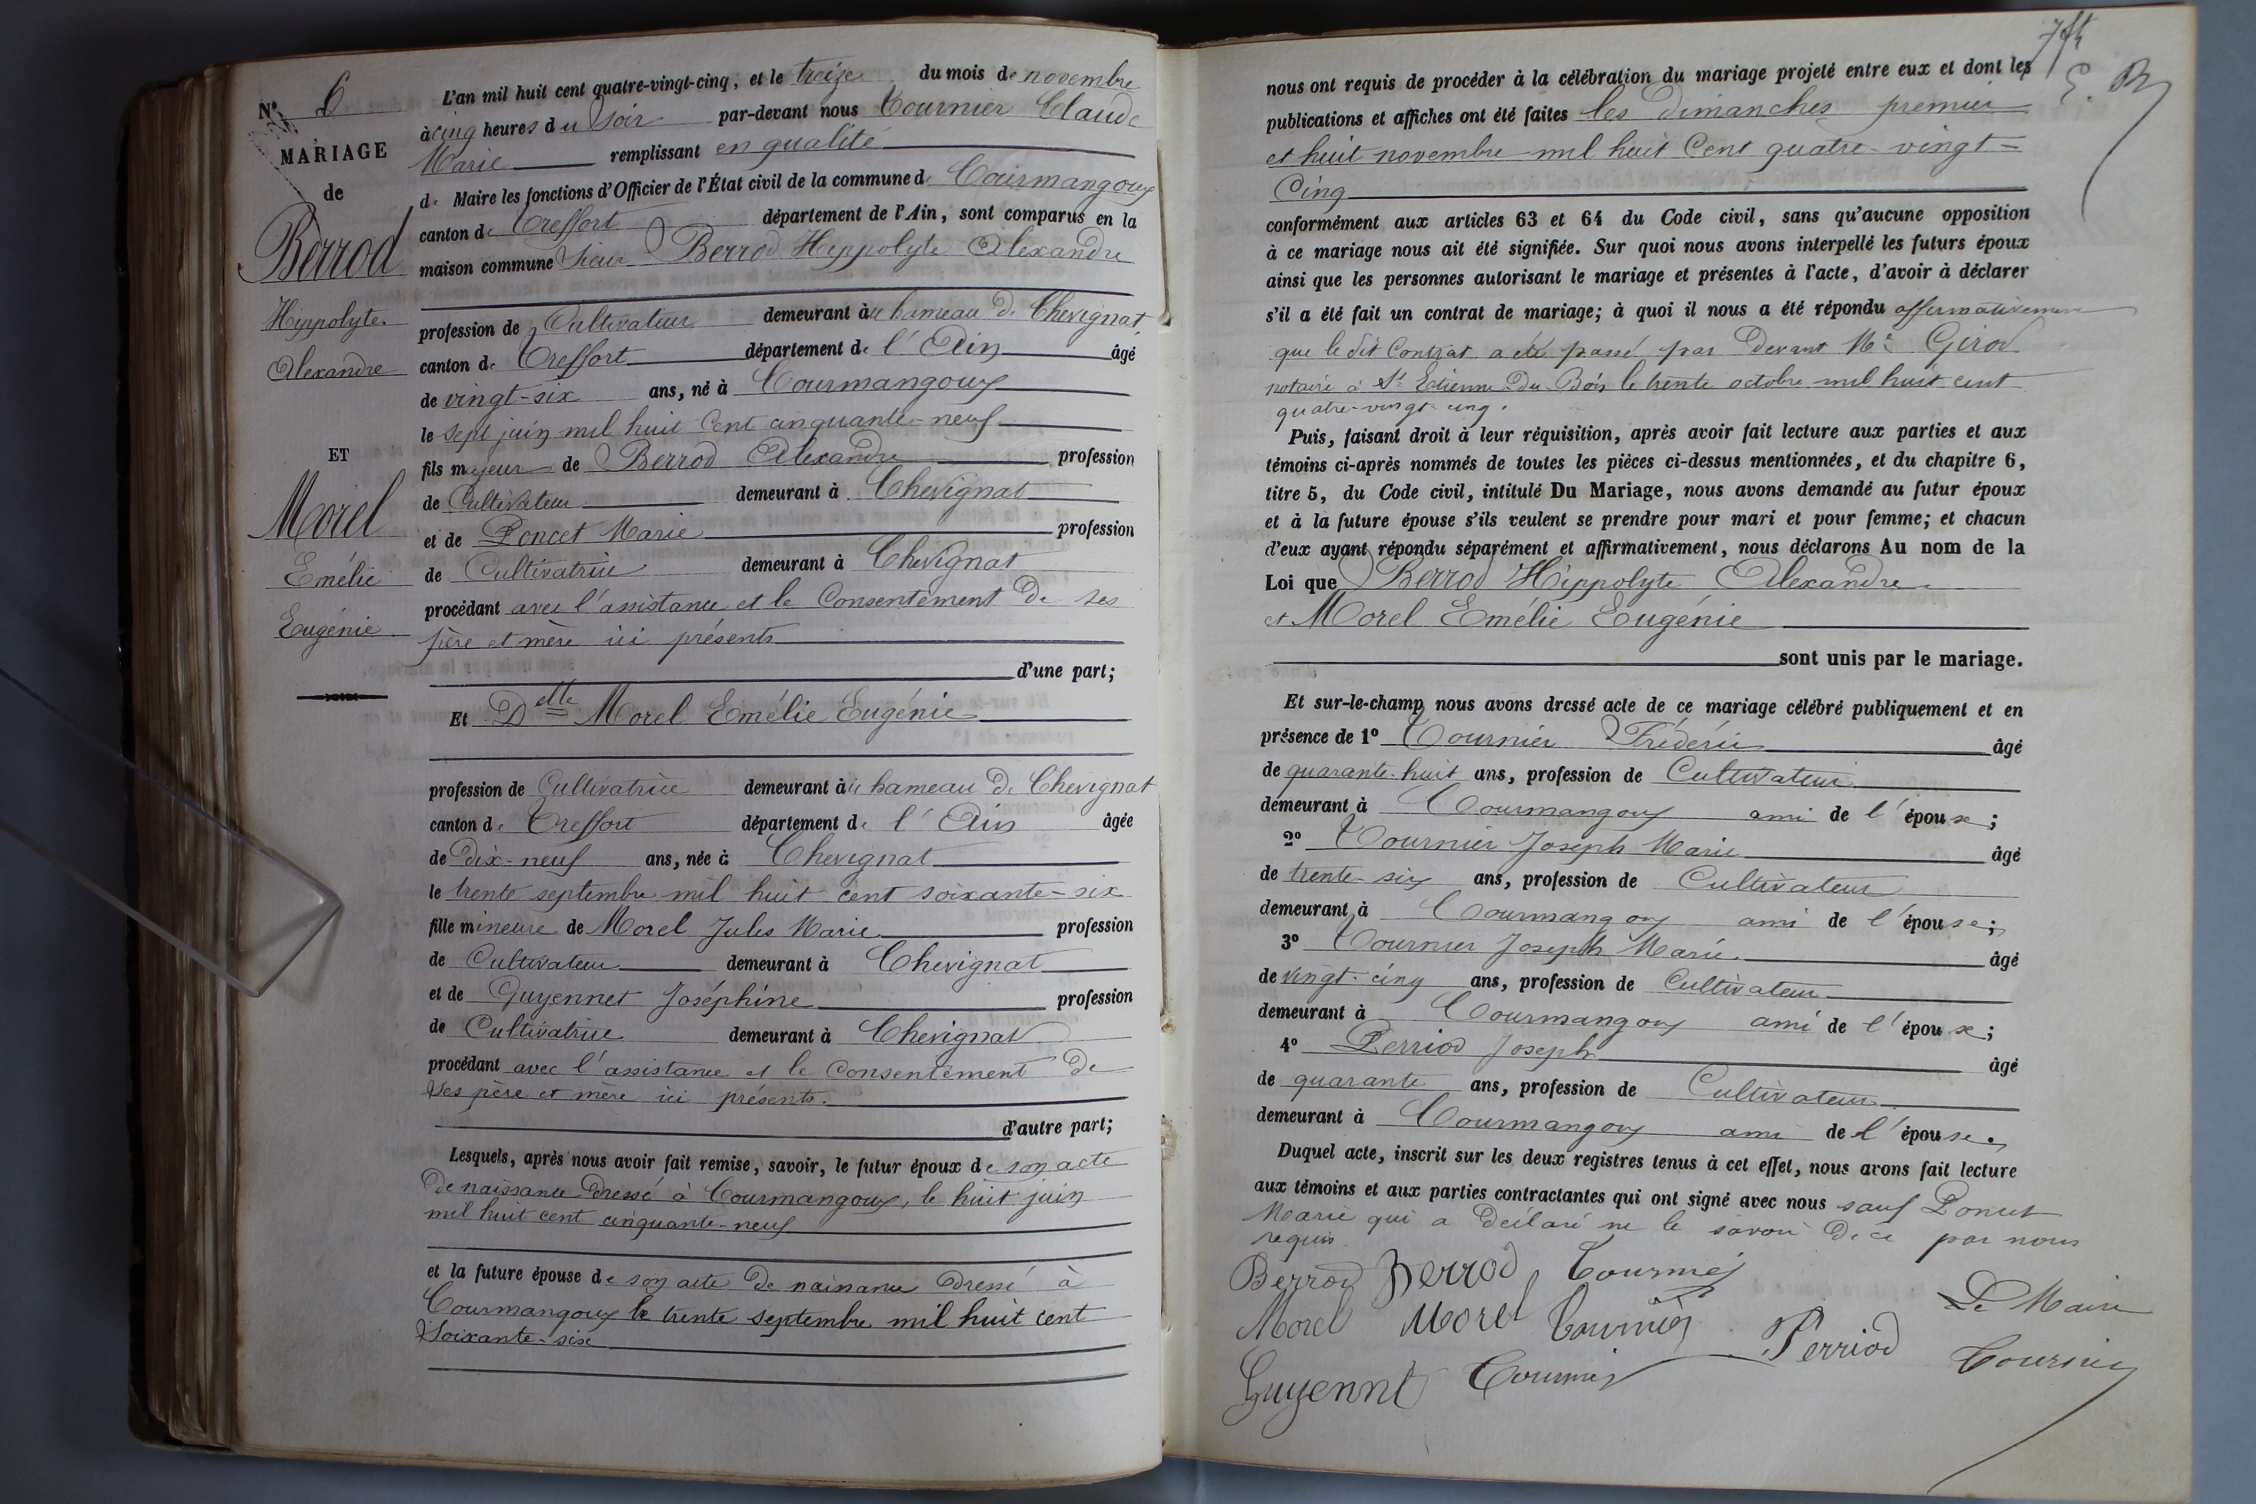 Nº 6
MARIAGE
de
Berrod
Hippolyte
Alexandre
ET
Morel
Emélie
Eugénie
L'an mil huit cent quatre-vingt-cinq, et le treize du mois de novembre
à cinq heures du soir par-devant nous Tournier Claude
Marie remplissant en qualité
de Maire les fonctions d'Officier de l'État civil de la commune de Courmangoux
canton de Treffort département de l'Ain, sont comparus en la
maison commune Sieur Berrod Hippolyte Alexandre
profession de Cultivateur demeurant à hameau de Chevignat
canton de Treffort département de l'Ain âgé
de vingt-six ans, né à Courmangoux
le sept juin mil huit cent cinquante-neuf
fils majeur de Berrod Alexandre profession
de Cultivateur demeurant à Chevignat
et de Poncet Marie profession
de Cultivatrice demeurant à Chevignat
procédant avec l'assistance et le consentement de ses
père et mère ici présents
d'une part;
Et Delle Morel Emélie Eugénie
profession de Cultivatrice demeurant à hameau de Chevignat
canton de Treffort département de l'Ain âgée
de dix-neuf ans, née à Chevignat
le trente septembre mil huit cent soixante-six
fille mineure de Morel Jules Marie profession
de Cultivateur demeurant à Chevignat
et de Guyennet Joséphine profession
de Cultivatrice demeurant à Chevignat
procédant avec l'assistance et le consentement de
ses père et mère ici présents.
d'autre part;
Lesquels, après nous avoir fait remise, savoir, le futur époux de son acte
de naissance dressé à Courmangoux, le huit juin
mil huit cent cinquante-neuf
et la future épouse de son acte de naissance dressé à
Courmangoux le trente septembre mil huit cent
soixante-six
nous ont requis de procéder à la célébration du mariage projeté entre eux et dont les
publications et affiches ont été faites les dimanches premier
et huit novembre mil huit cent quatre-vingt-
cinq
conformément aux articles 63 et 64 du Code civil, sans qu'aucune opposition
à ce mariage nous ait été signifiée. Sur quoi nous avons interpellé les futurs époux
ainsi que les personnes autorisant le mariage et présentes à l'acte, d'avoir à déclarer
s'il a été fait un contrat de mariage; à quoi il nous a été répondu affirmativement
que le dit Contrat a été passé par devant Me Girod
notaire à St Etienne-du-Bois le trente octobre mil huit cent
quatre-vingt-cinq.
Puis, faisant droit à leur réquisition, après avoir fait lecture aux parties et aux
témoins ci-après nommés de toutes les pièces ci-dessus mentionnées, et du chapitre 6,
titre 5, du Code civil, intitulé Du Mariage, nous avons demandé au futur époux
et à la future épouse s'ils veulent se prendre pour mari et pour femme; et chacun
d'eux ayant répondu séparément et affirmativement, nous déclarons Au nom de la
Loi que Berrod Hippolyte Alexandre
et Morel Emélie Eugénie
sont unis par le mariage.
Et sur-le-champ nous avons dressé acte de ce mariage célébré publiquement et en
présence de 1º Tournier Frédéric âgé
de quarante-huit ans, profession de Cultivateur
demeurant à Courmangoux ami de l'épouse;
2º Tournier Joseph Marie âgé
de trente-six ans, profession de Cultivateur
demeurant à Courmangoux ami de l'épouse;
3º Tournier Joseph Marie âgé
de vingt-cinq ans, profession de Cultivateur
demeurant à Courmangoux ami de l'épouse;
4º Perriod Joseph âgé
de quarante ans, profession de Cultivateur
demeurant à Courmangoux ami de l'épouse.
Duquel acte, inscrit sur les deux registres tenus à cet effet, nous avons fait lecture
aux témoins et aux parties contractantes qui ont signé avec nous sauf Poncet
Marie qui a déclaré ne le savoir de ce par nous
requis
Berrod Berrod Tournier
Morel Morel Tournier Perriod Le Maire
Guyennet Tournier Tournier